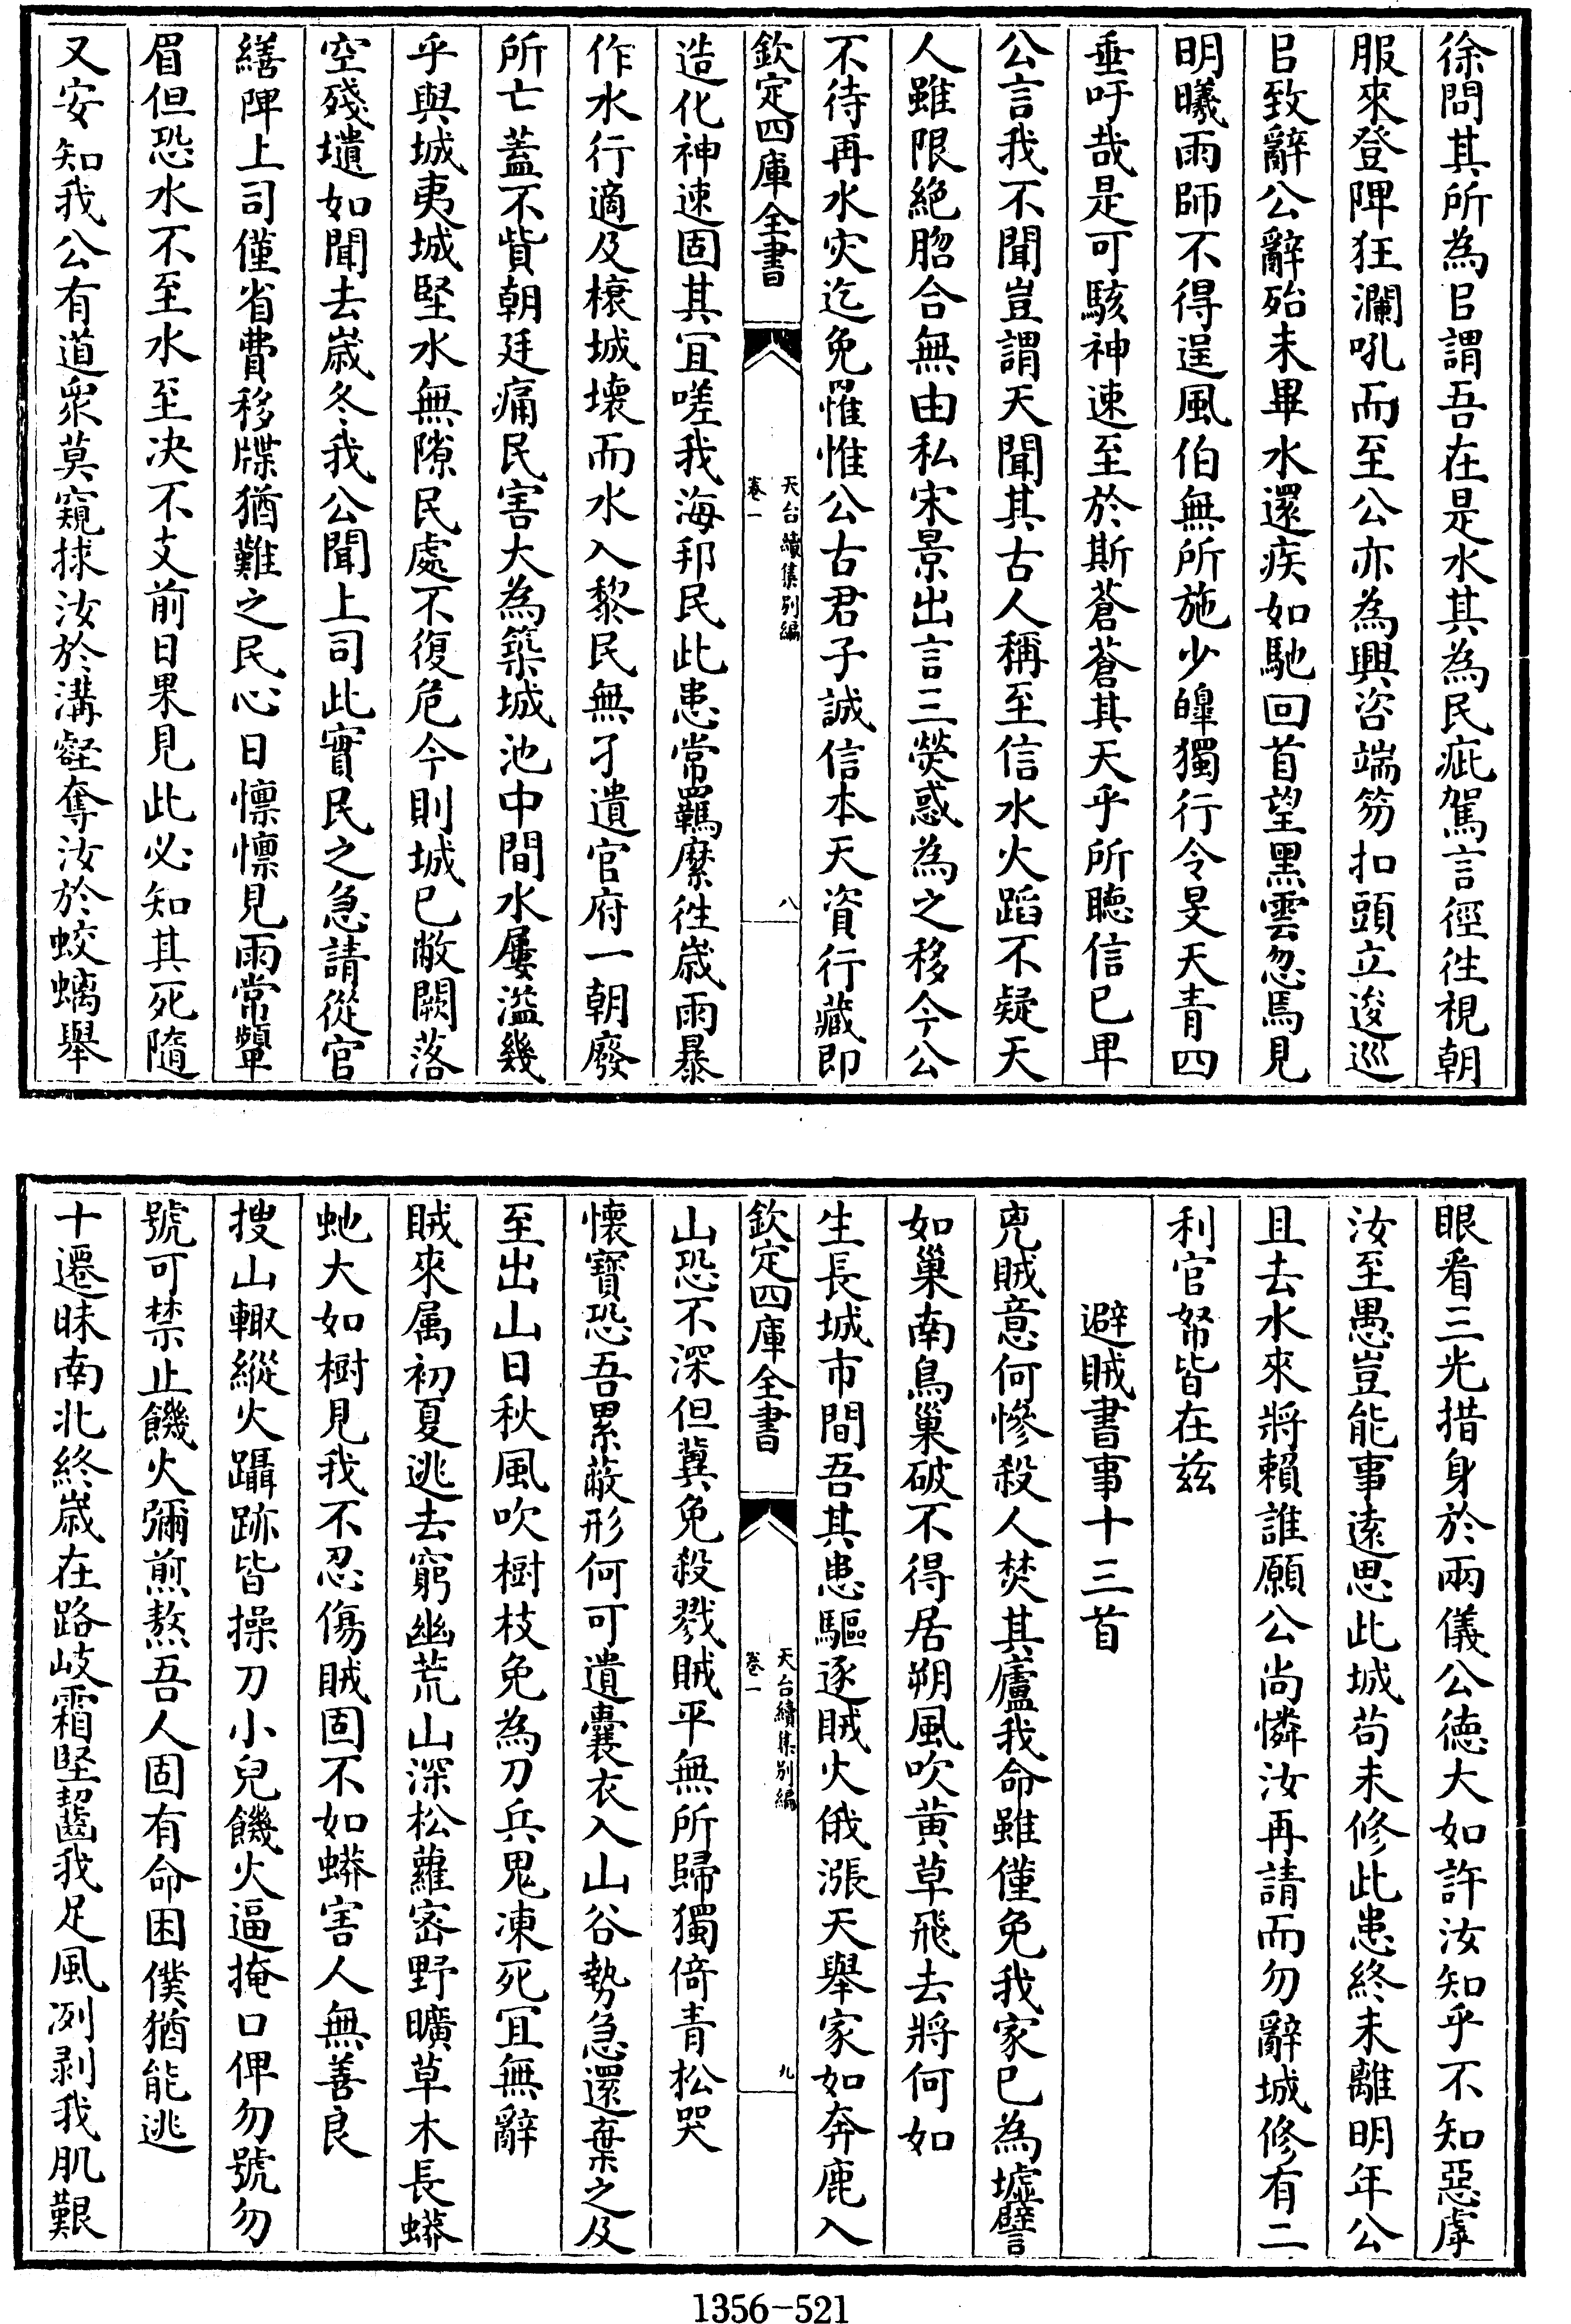 徐問其所為㠯謂吾在是水其為民疵駕言徑徃視朝
服來登陴狂瀾吼而至公亦為興咨端笏扣頭立逡巡
㠯致辭公辭殆未畢水還疾如馳回首望黑雲忽焉見
明曦雨師不得逞風伯無所施少皥獨行令旻天青四
垂吁哉是可駭神速至於斯蒼蒼其天乎所聴信已卑
公言我不聞豈謂天聞其古人稱至信水火蹈不疑天
人雖限絶脗合無由私宋景出言三熒惑為之移今公
不待再水灾迄免罹惟公古君子誠信本天資行藏即
欽定四庫全書
天台續集別編
卷一
八
造化神速固其冝嗟我海邦民此患常羈縻徃嵗雨暴
作水行適及榱城壞而水入黎民無孑遺官府一朝廢
所亡蓋不貲朝廷痛民害大為築城池中間水屢溢幾
乎與城夷城堅水無隙民處不復危今則城已敝闕落
空殘壝如聞去嵗冬我公聞上司此實民之急請從官
繕陴上司僅省費移牒猶難之民心日懍懍見雨常顰
眉但恐水不至水至决不支前日果見此必知其死隨
又安知我公有道衆莫窺捄汝於溝壑奪汝於蛟螭舉
眼看三光措身於兩儀公徳大如許汝知乎不知惡虖
汝至愚豈能事逺思此城苟未修此患終未離明年公
且去水來將賴誰願公尚憐汝再請而勿辭城修有二
利官帑皆在兹
避賊書事十三首
兇賊意何慘殺人焚其廬我命雖僅免我家已為墟譬
如巢南鳥巢破不得居朔風吹黄草飛去將何如
生長城市間吾其患驅逐賊火俄漲天舉家如奔鹿入
欽定四庫全書
天台續集別編
卷一
九
山恐不深但冀免殺戮賊平無所歸獨倚青松哭
懐寳恐吾累蔽形何可遺囊衣入山谷勢急還棄之及
至出山日秋風吹樹枝免為刀兵鬼凍死冝無辭
賊來屬初夏逃去窮幽荒山深松蘿宻野曠草木長蟒
虵大如樹見我不忍傷賊固不如蟒害人無善良
搜山輙縱火躡跡皆操刀小兒饑火逼掩口俾勿號勿
號可禁止饑火彌煎熬吾人固有命困僕猶能逃
十遷昧南北終嵗在路岐霜堅齧我足風冽剥我肌艱
1356-521